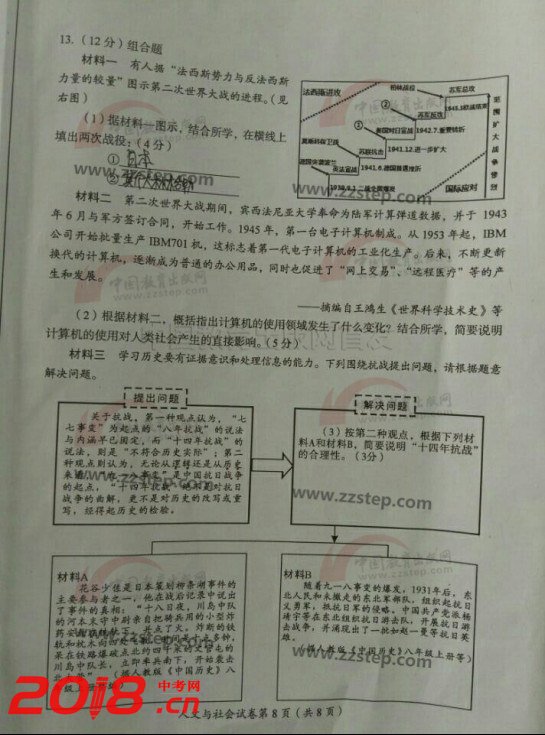 13.（12分）组合题
材料一 有人据“法西斯势力与反法西斯
力量的较量”图示第二次世界大战的进程。（见
右图）
（1）据材料一图示，结合所学，在横线上
填出两次战役：（4分）
①
②
法西斯进攻
柏林战役
苏军总攻
1945.5欧战结束
②
苏军反攻
①
美国对日宣战
1942.7.重要转折
莫斯科保卫战
苏联抗击
1941.12.进一步扩大
德国突袭波兰
1941.6.德国首遭挫折
英法宣战
1939.9.1.二战全面爆发
国际应对
范围扩大战争惨烈
材料二 第二次世界大战期间，宾西法尼亚大学奉命为陆军计算弹道数据，并于 1943
年 6 月与军方签订合同，开始工作。1945 年，第一台电子计算机制成。从 1953 年起，IBM
公司开始批量生产 IBM701 机，这标志着第一代电子计算机的工业化生产。后来，不断更新
换代的计算机，逐渐成为普通的办公用品，同时也促进了“网上交易”、“远程医疗”等的产
生和发展。
——摘编自王鸿生《世界科学技术史》等
（2）根据材料二，概括指出计算机的使用领域发生了什么变化？结合所学，简要说明
计算机的使用对人类社会产生的直接影响。（5分）
材料三 学习历史要有证据意识和处理信息的能力。下列围绕抗战提出问题，请根据题意
解决问题。
提出问题
关于抗战，第一种观点认为，“七
七事变”为起点的“八年抗战”的说法
与内涵早已固定，而“十四年抗战”的
说法，则是“不符合历史实际”；第二
种观点则认为，无论从逻辑还是从历史
来看，“九一八事变”是中国抗日战争
的起点，“十四年抗战”绝不是对抗日
战争的曲解，更不是对历史的改写或重
写，经得起历史的检验。
解决问题
（3）按第二种观点，根据下列材
料A和材料B，简要说明“十四年抗战”
的合理性。（3分）
材料A
花谷少佐是日本策划柳条湖事件的
主要参与者之一，他在战后记录中说出
了事件的真相：“十八日夜，川岛中队
的河本末守中尉亲自把骑兵用的小型炸
药安置在铁轨下，并点了火，炸断的铁
轨和枕木向四处飞散，时间是十点多钟，
呆在铁路爆破点北约四千米的文官屯的
川岛中队长，立即率兵南下，开始袭击
北大营”（据人教版《中国历史》八
级上册等编）
材料B
随着九一八事变的爆发，1931年后，东
北人民和未撤走的东北军部队，组织起抗日
义勇军，抵抗日军的侵略，中国共产党派杨
靖宇等在东北组织抗日游击队，开展抗日游
击战争，并涌现出了一批如赵一曼等抗日英
雄。
（据人教版《中国历史》八年级上册等）
人文与社会试卷第 8 页（共 8 页）
中国教育出版网
www.zzstep.com
www.zzstep.com
www.zzstep.com
www.zzstep.com
2018.中考网
.cn